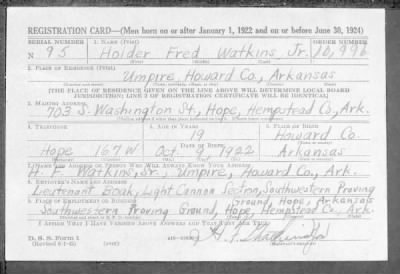 REGISTRATION CARD—(Men born on or after January 1, 1922 and on or before June 30, 1924)
SERIAL NUMBER 1. NAME (Print) ORDER NUMBER
N 95 Holder Fred Watkins Jr. 10,996
(First) (Middle) (Last)
2. PLACE OF RESIDENCE (Print)
Umpire, Howard Co., Arkansas
[THE PLACE OF RESIDENCE GIVEN ON THE LINE ABOVE WILL DETERMINE LOCAL BOARD
JURISDICTION; LINE 2 OF REGISTRATION CERTIFICATE WILL BE IDENTICAL]
3. MAILING ADDRESS
703 S. Washington St., Hope, Hempstead Co., Ark.
4. TELEPHONE 5. AGE IN YEARS 6. PLACE OF BIRTH
19 Howard Co.
DATE OF BIRTH
Hope 167W Oct. 9 1922 Arkansas
7. NAME AND ADDRESS OF PERSON WHO WILL ALWAYS KNOW YOUR ADDRESS
H. F. Watkins, Sr., Umpire, Howard Co., Ark.
8. EMPLOYER'S NAME AND ADDRESS
Lieutenant Doak, Light Cannon Section, Southwestern Proving
Ground, Hope, Arkansas
9. PLACE OF EMPLOYMENT OR BUSINESS
Southwestern Proving Ground, Hope, Hempstead Co., Ark.
I AFFIRM THAT I HAVE VERIFIED ABOVE ANSWERS AND THAT THEY ARE TRUE.
D. S. S. Form 1
(Revised 6-1-42)